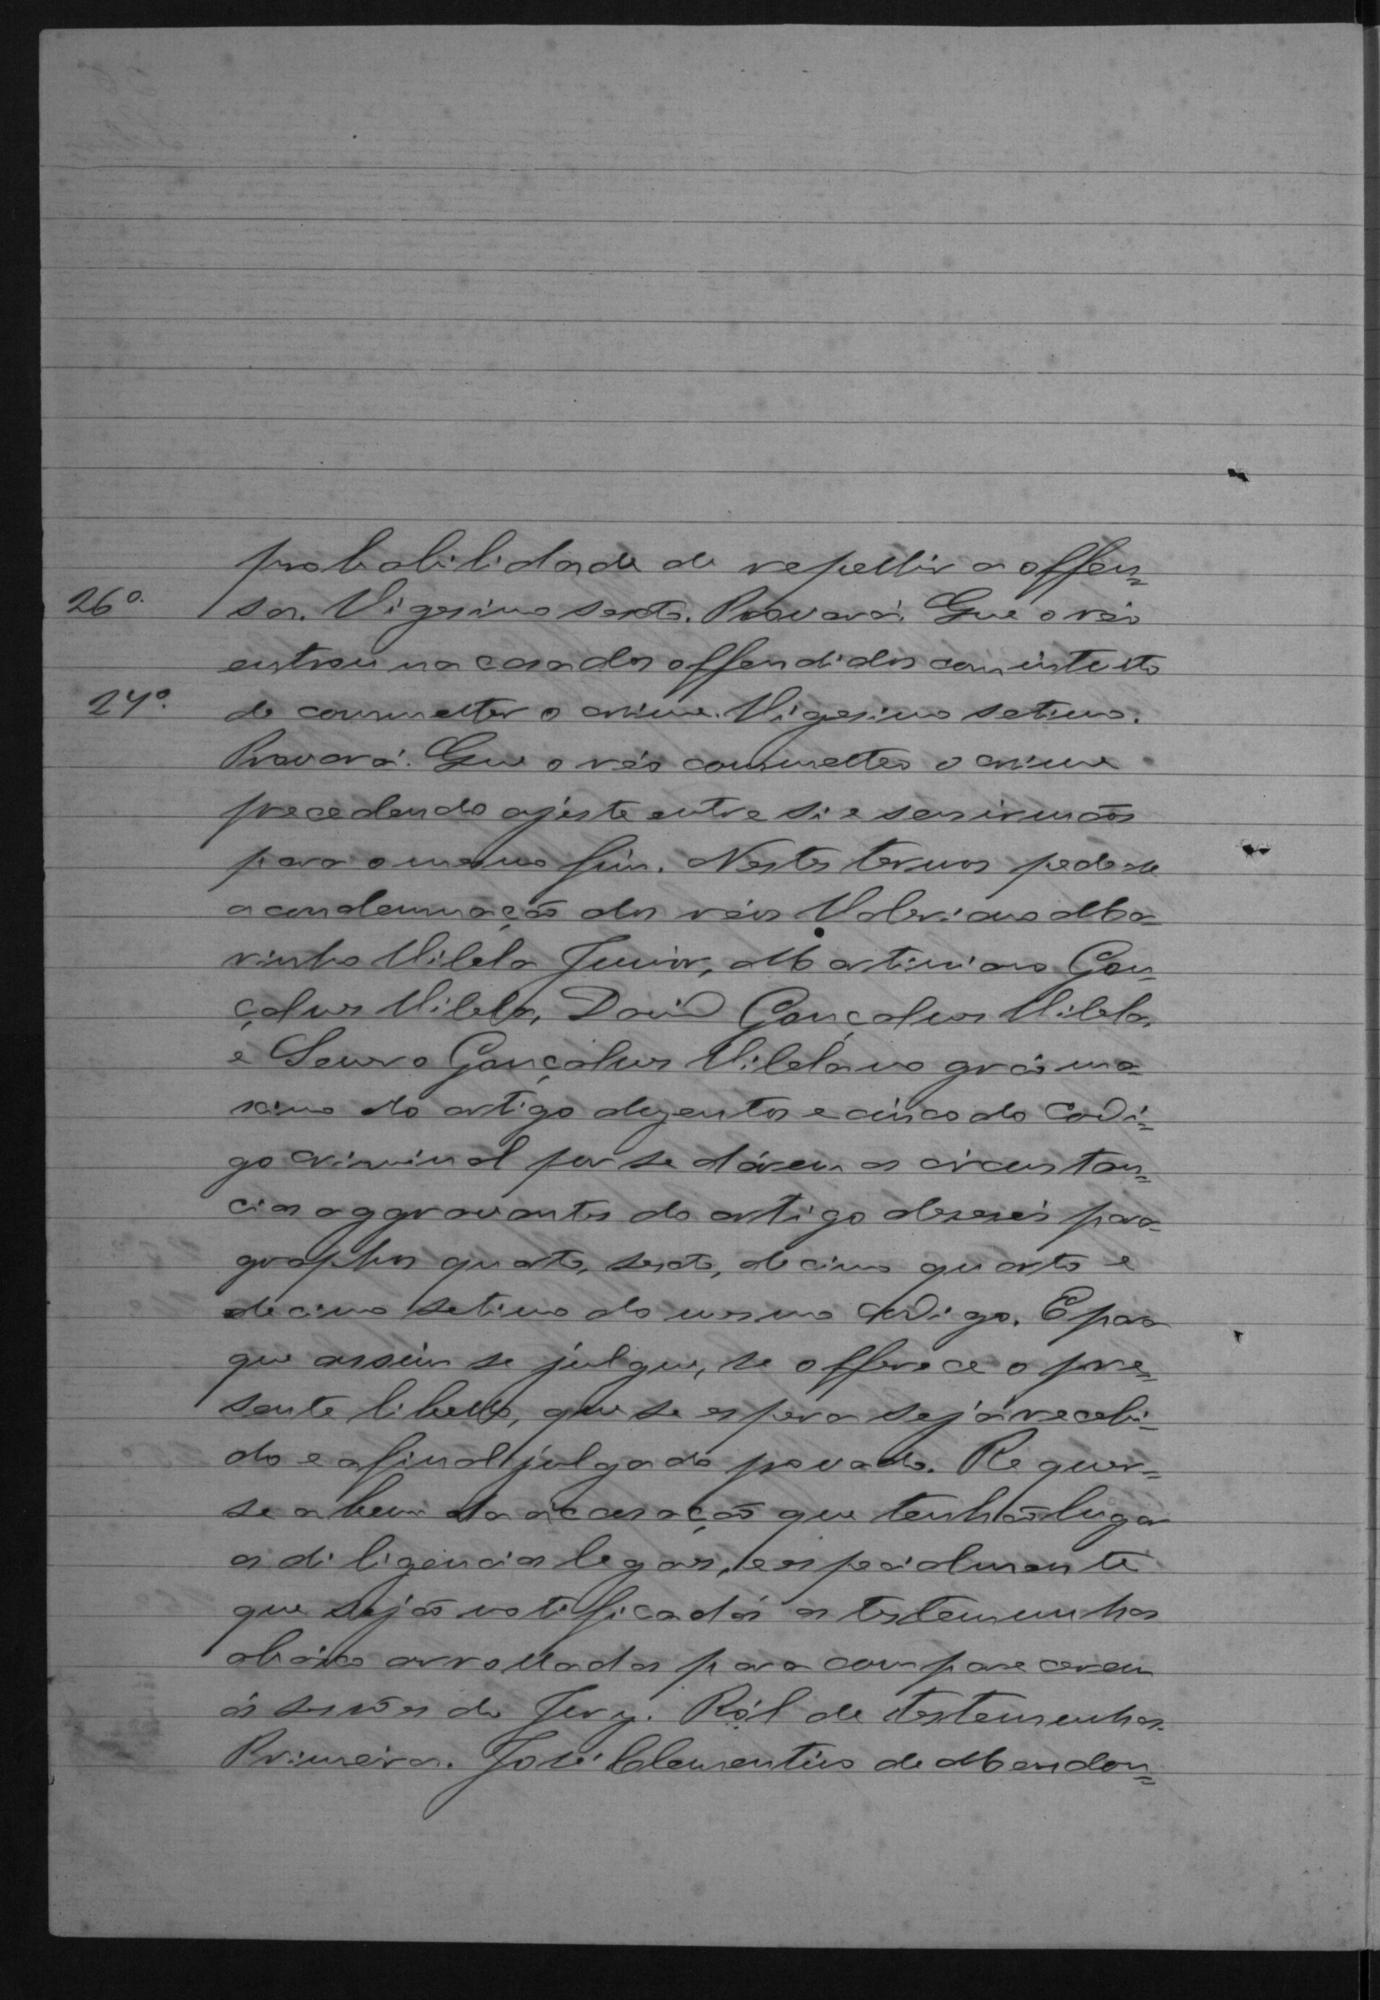 probabilidade de repellir a offen=
26º. sa. Vigesimo sexto. Provará. Que o réo
entrou na casa dos offendidos com intuito
27º. de commetter o crime. Vigesimo setimo.
Provará. Que o réo commetteo o crime
precedendo ajuste entre si e seus irmãos
para o mesmo fim. Nestes termos pede-se
a condemnação dos réos Valeriano Ma-
rinho Vilela Junior, Martiniano Gon=
çalves Vilela, David Gonçalves Vilela,
e Severo Gonçalves Vilela no gráo ma-
ximo do artigo duzentos e cinco do Codi=
go criminal por se dárem as circustan=
cias aggravantes do artigo deseseis para-
graphos quarto, sexto, decimo quarto e
decimo setimo do mesmo Codigo. E para
que assim se julgue, se offerece o pre=
sente libello, que se espera sejá recebi=
do e afinal julgado provado. Requer=
se a bem da accusação que tenhão lugar
as diligencias legaes, e especialmente
que sejão notificadas as testemunhas
abáixo arrolladas para comparecerem
ás sessões do Jury. Ról de testemunhas.
Primeira. José Clementino de Mendon=